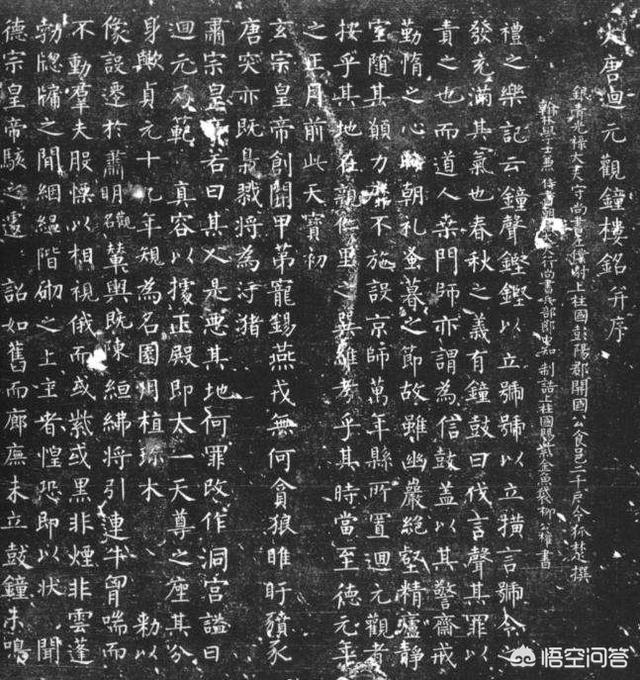 大唐迴元觀鐘樓銘并序
銀青光祿大夫守尚書左僕射上柱國彭陽郡開國公食邑二千戶令狐楚撰
翰林學士兼侍書朝議大夫行尚書兵部郎中知制誥上柱國賜紫金魚袋柳公權書
禮之樂記云鐘聲鏗鏗以立號號以立橫言號令之
發充滿其氣也春秋之義有鐘鼓曰伐言聲其罪以
責之也而道人桒門師亦謂為信鼓蓋以其警齋戒
勤惰之心時朝礼蚤暮之節故雖幽巖絕壑精廬靜
室隨其願力靡不施設京師萬年縣所置迴元觀者
按乎其地在親仁里之巽維考乎其時當至德元年
之正月前此天寶初
玄宗皇帝創開甲第寵錫燕戎無何貪狼睢盱豶豕
唐突亦既梟戮將為汙猪
肅宗皇帝若曰其人是惡其地何罪改作洞宮謚曰
迴元乃範 真容以據正殿即太一天尊之座其分
身歟貞元十九年規為名園用植珍木 勑以
像設遷於肅明觀輦輿既陳絙紼將引連牛胷喘而
不動羣夫股慄以相視俄而或紫或黑非煙非雲蓬
勃牕牖之閒絪縕階砌之上主者惶恐即以狀 聞
德宗皇帝駭之遽 詔如舊而廊廡未立鼓鐘未鳴
悟空问答